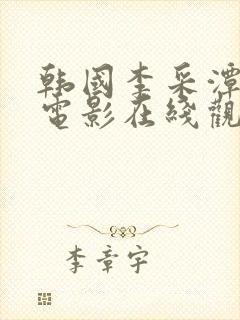 韩國李采潭
電影在綫觀
李章宇